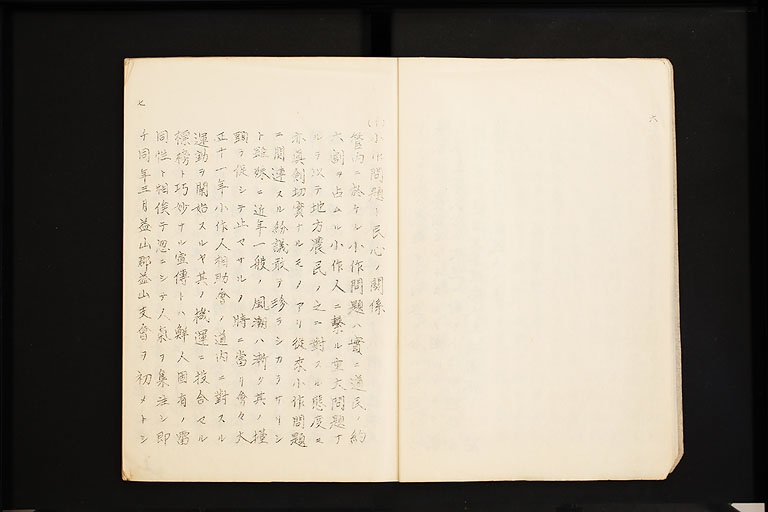 六
七
小作問題ト民心ノ關係
管内ニ於ケル小作問題ハ實ニ道民ノ約
六割ヲ占ムル小作人ニ繫ル重大問題ナ
ルヲ以テ地方農民ノ之ニ對スル態度モ
亦眞劍切實ナルモノアリ從來小作問題
ニ関連スル紛議敢テ珍ラシカラサリシ
ト雖殊ニ近年一般ノ風潮ハ漸ク其ノ擡
頭ヲ促シテ止マサルノ時ニ當リ會々大
正十一年小作人相助會ノ道内ニ對スル
運動ヲ開始スルヤ其ノ機運ニ投合セル
標榜ト巧妙ナル宣傳トハ鮮人固有ノ雷
同性ト相俟テ忽ニシテ人氣ヲ集注シ即
チ同年三月益山郡益山支會ヲ初メトシ